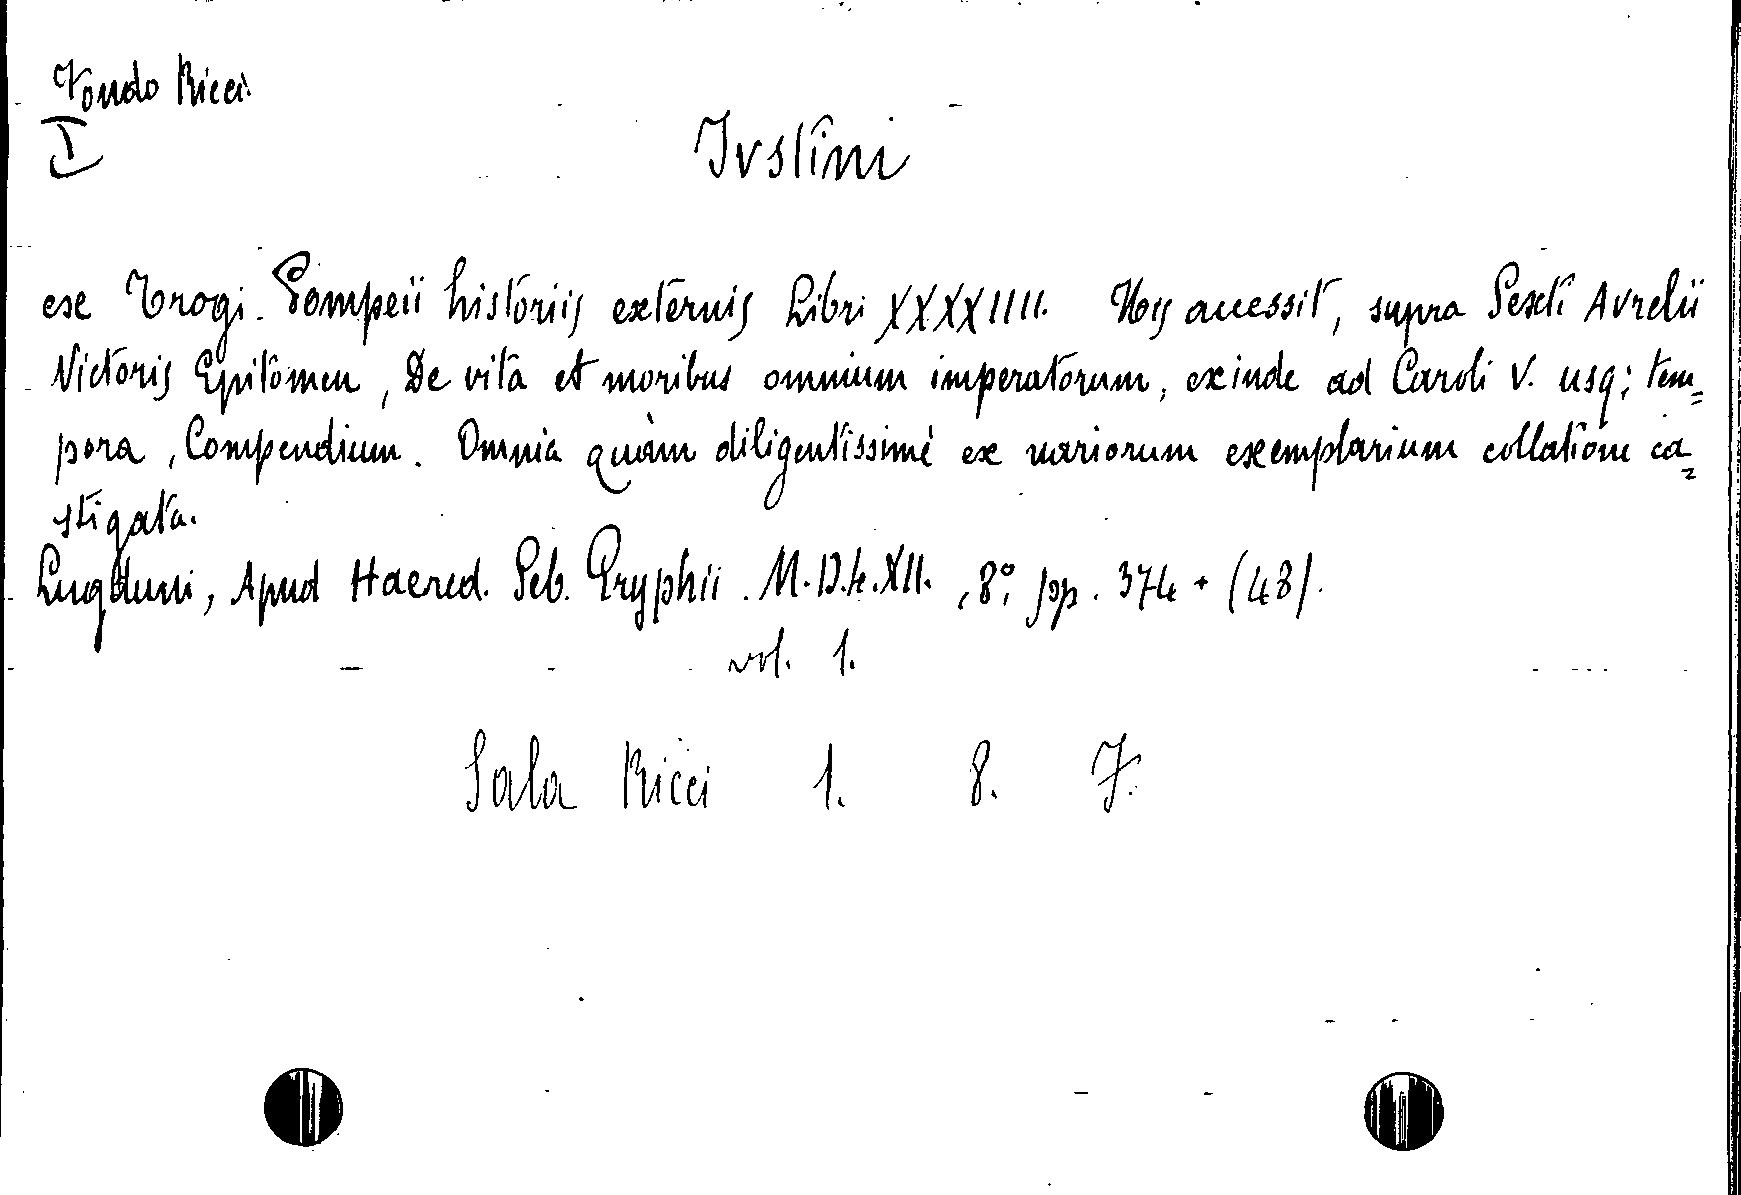 Fondo Ricci
I
Ivstini
ex Trogi Pompeii historiis externis Libri XXXXIIII. His accessit, supra Sexti Avrelii
Victoris Epitomen, De vita et moribus omnium imperatorum, exinde ad Caroli V. usq; tem=
pora, Compendium. Omnia quàm diligentissimè ex variorum exemplarium collatione ca=
stigata.
Lugduni, Apud Haered. Seb. Gryphii. M.D.LXII., 8°, pp. 374 + (48).
vol. 1.
Sala Ricci 1. 8. 7.